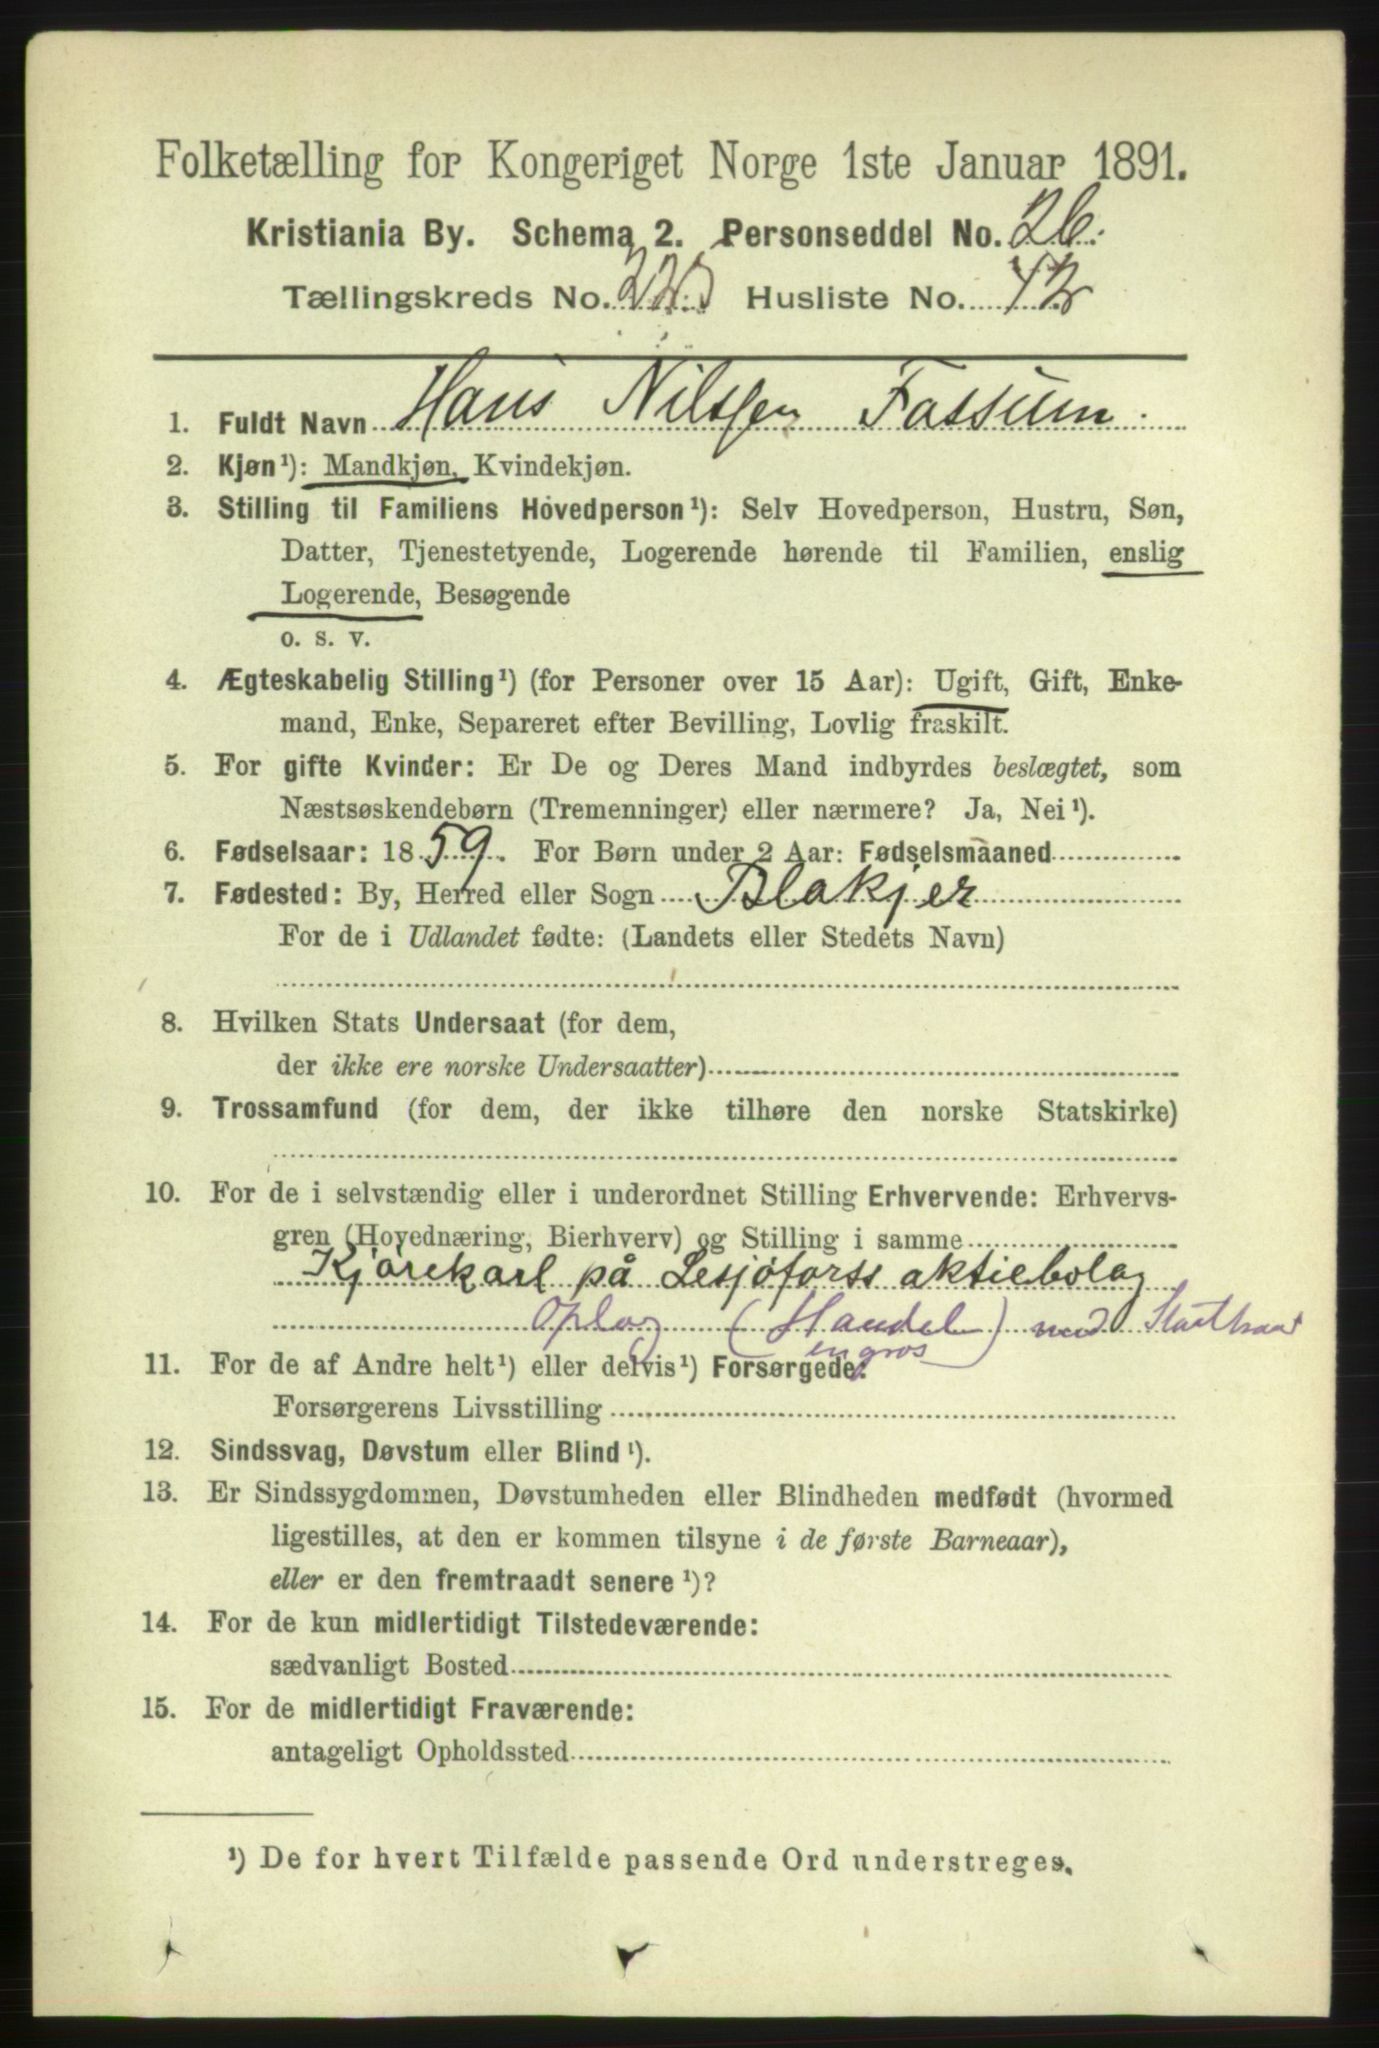 Folketælling for Kongeriget Norge 1ste Januar 1891.
Kristiania By. Schema 2. Personseddel No. 26.
Tællingskreds No. 220 Husliste No. 42
1. Fuldt Navn Hans Nilsen Fossum.
2. Kjøn¹): Mandkjøn, Kvindekjøn.
3. Stilling til Familiens Hovedperson¹): Selv Hovedperson, Hustru, Søn,
Datter, Tjenestetyende, Logerende hørende til Familien, enslig
Logerende, Besøgende
o. s. v.
4. Ægteskabelig Stilling¹) (for Personer over 15 Aar): Ugift, Gift, Enke-
mand, Enke, Separeret efter Bevilling, Lovlig fraskilt.
5. For gifte Kvinder: Er De og Deres Mand indbyrdes beslægtet, som
Næstsøskendebørn (Tremenninger) eller nærmere? Ja, Nei¹).
6. Fødselsaar: 1859. For Børn under 2 Aar: Fødselsmaaned
7. Fødested: By, Herred eller Sogn Blakjer
For de i Udlandet fødte: (Landets eller Stedets Navn)
8. Hvilken Stats Undersaat (for dem,
der ikke ere norske Undersaatter)
9. Trossamfund (for dem, der ikke tilhøre den norske Statskirke)
10. For de i selvstændig eller i underordnet Stilling Erhvervende: Erhvervs-
gren (Hovednæring, Bierhverv) og Stilling i samme
Kjørekarl på Lesjöforss aktiebolag
Oplag (Handel engros) med
11. For de af Andre helt¹) eller delvis¹) Forsørgede:
Forsørgerens Livsstilling
12. Sindssvag, Døvstum eller Blind¹).
13. Er Sindssygdommen, Døvstumheden eller Blindheden medfødt (hvormed
ligestilles, at den er kommen tilsyne i de første Barneaar),
eller er den fremtraadt senere¹)?
14. For de kun midlertidigt Tilstedeværende:
sædvanligt Bosted
15. For de midlertidigt Fraværende:
antageligt Opholdssted
¹) De for hvert Tilfælde passende Ord understreges.